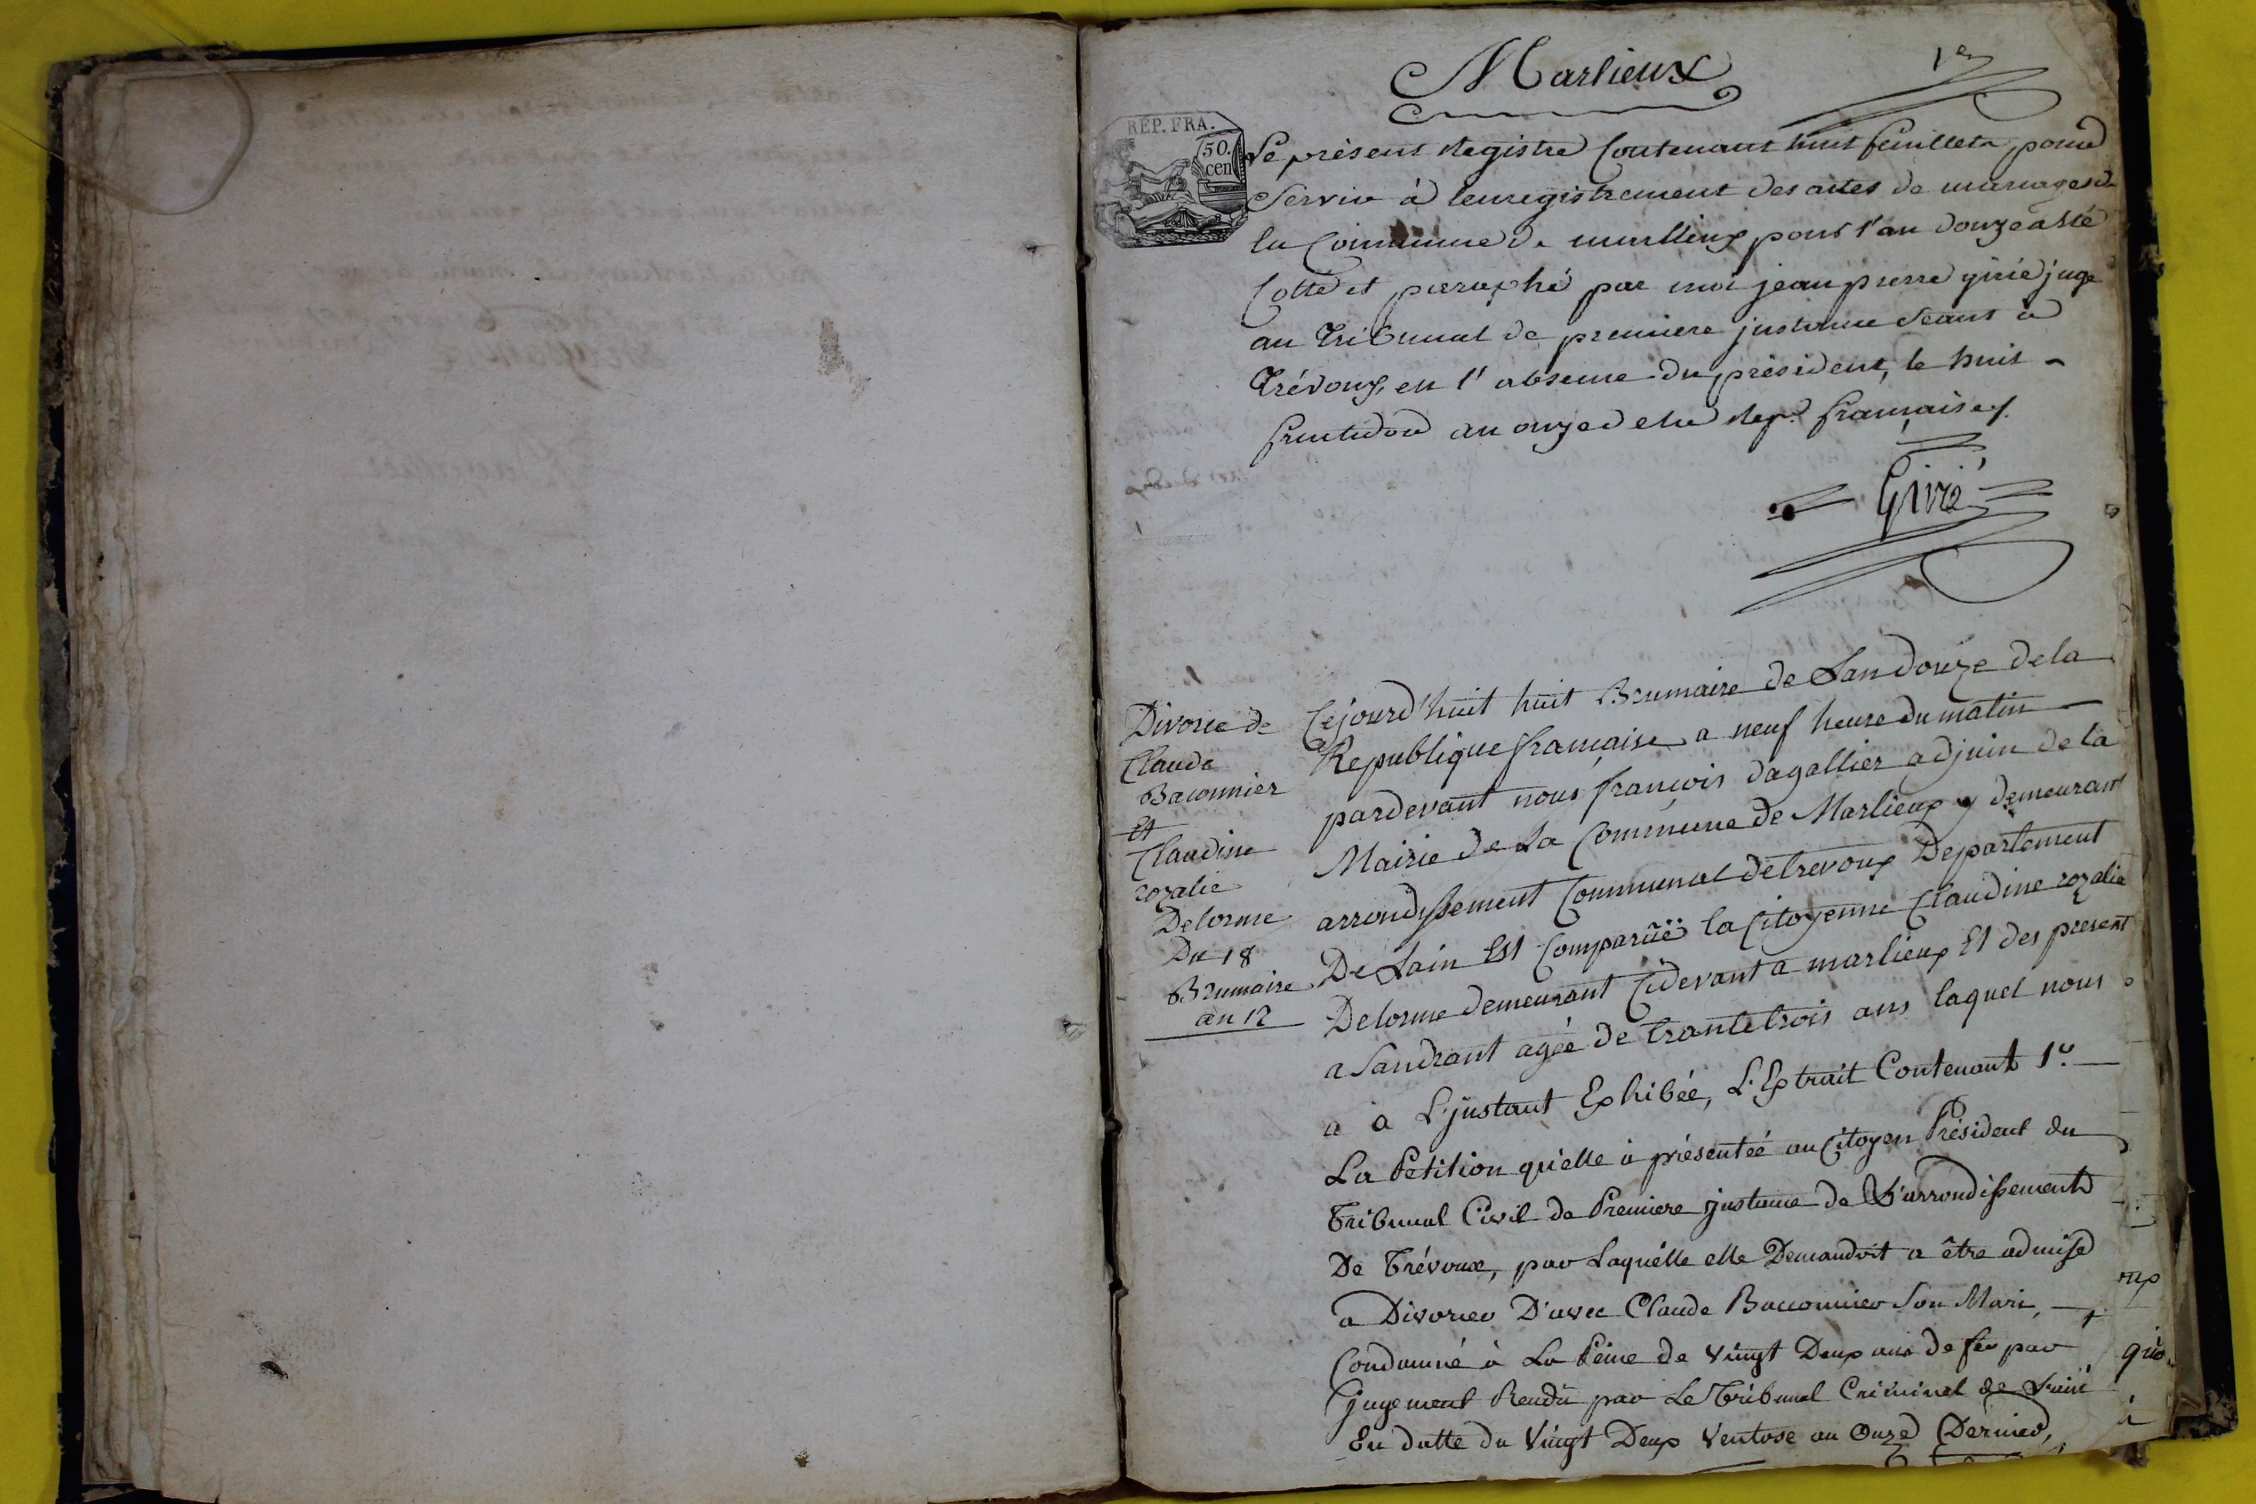 Marlieux
1er
REP. FRA.
50.
cen
Le présent Registre Contenant huit feuillets pour
Servir à lenregistrement des actes de mariages de
la Commune de marlieux pour l'an douze a été
Cotté et paraphé par moi jean pierre givié juge
au Tribunal de premiere jnstance Séant à
Trévoux, en l'absence du président, le huit
fructidor an onze de la rep. française /.
Givié
Divorce de
Claude
Baconnier
Et
Claudine
rozalie
Delorme
Du 18
Brumaire
an 12
Cejourd'huit huit Brumaire de Lan douze de la
Republique française a neuf heure du matin
pardevant nous françois dagallier adjoin de la
Mairie de La Commune de Marlieux y demeurant
arrondissement Communal detrevoux Departement
De Lain Est Comparüe la Citoyenne Claudine rozalie
Delorme demeurant Cidevant a marlieux Et des present
a Sandrant agée de trante trois ans laquel nous
a à L'jnstant Exhibée, L'Extrait Contenant 1º
La Pétition qu'elle à présentée au Citoyen Président du
Tribunal Civil de Premiere jnstance de L'arrondissement
De Trévoux, par Laquelle elle Demandoit a être admise
a Divorcer D'avec Claude Baconnier Son Mari,
Condamné à La Peine de Vingt Deux ans de fer par
jugement Rendu par Le Tribunal Criminel de
En datte du Vingt Deux Ventose an Onze Dernier,